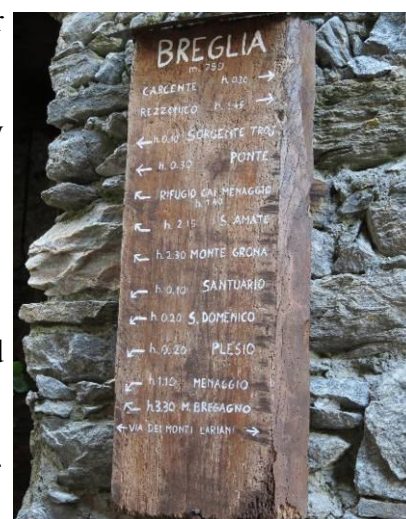 BREGLIA
m. 759
CARCENTE h. 0.30 →
REZZONICO h. 1.45 →
← h. 0.10 SORGENTE TROJ
← h. 0.30 PONTE
↖ RIFUGIO CAI MENAGGIO
h. 1.40
↖ h. 2.15 S. AMATE
↖ h. 2.30 MONTE GRONA
← h. 0.10 SANTUARIO
← h. 0.20 S. DOMENICO
← h. 0.20 PLESIO
← h. 1.10 MENAGGIO
↖ h. 3.30 M. BREGAGNO
← VIA DEI MONTI LARIANI →